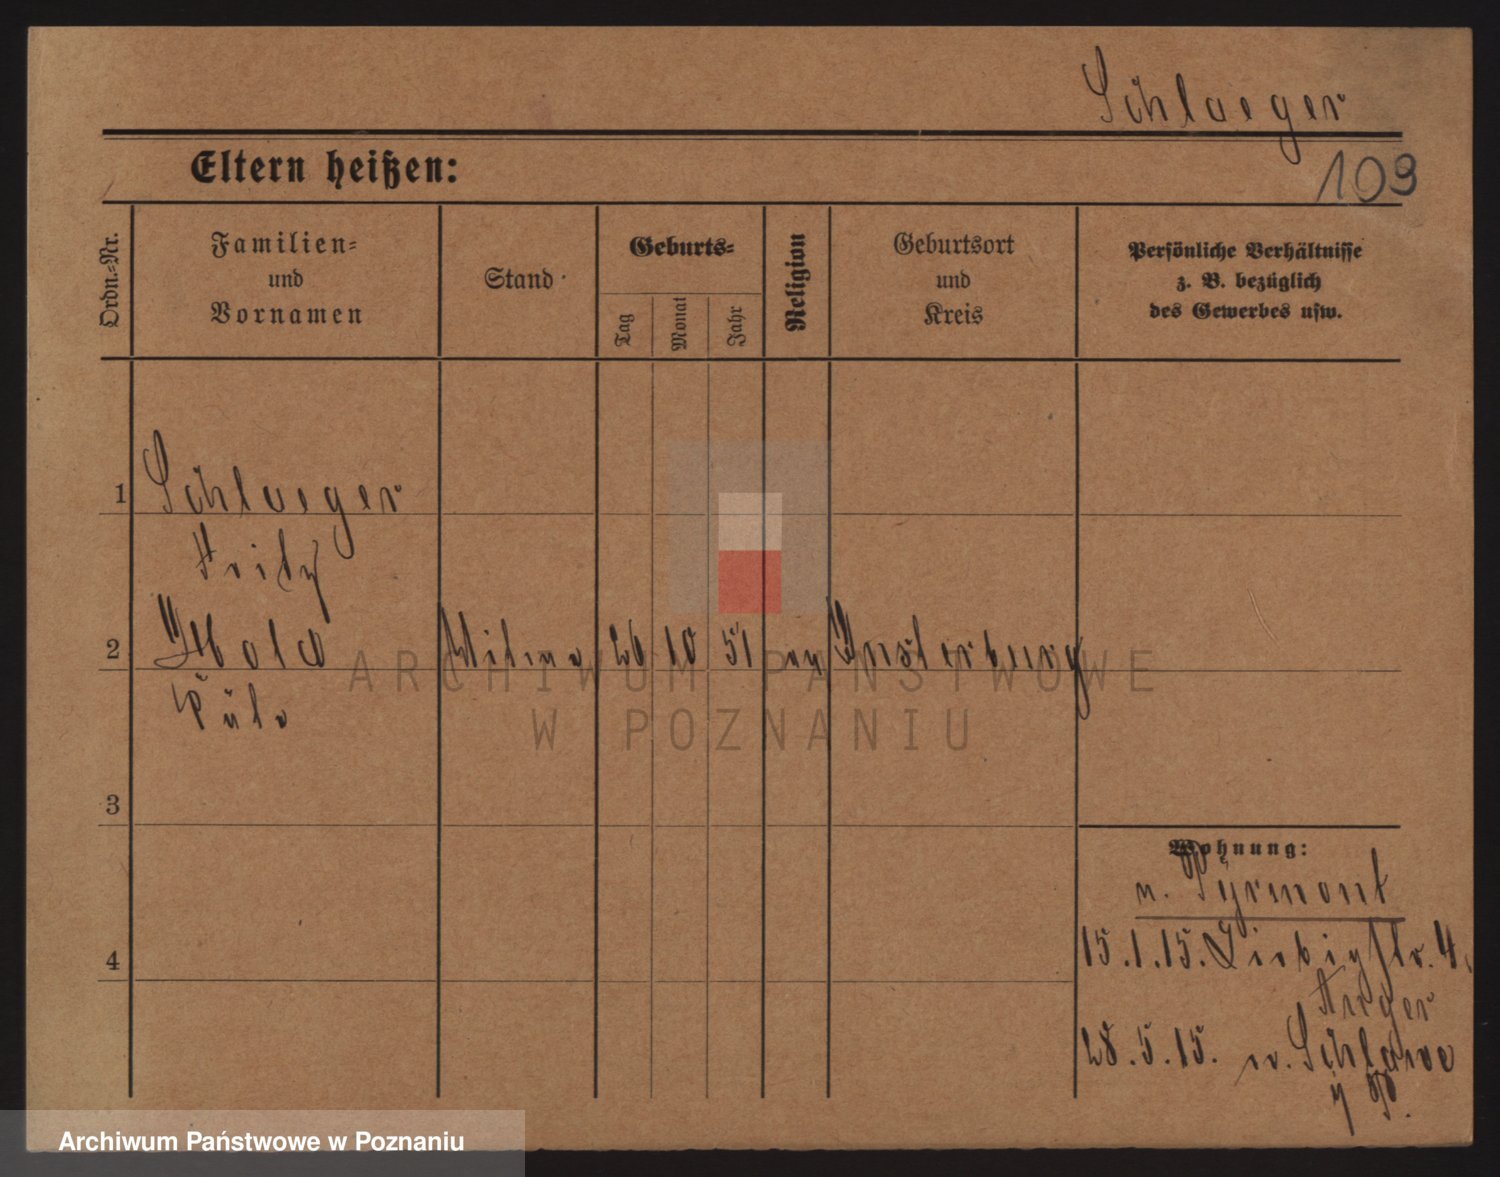 Schlaeger
Eltern heißen:
109
Ordn.-Nr.
Familien-
und
Vornamen
Stand
Geburts-
Tag
Monat
Jahr
Religion
Geburtsort
und
Kreis
Persönliche Verhältnisse
z. B. bezüglich
des Gewerbes usw.
1
Schlaeger
Fritz
2
26 10 51 Insterburg
3
4
Wohnung:
n. Pyrmont
15.1.15. Liebigstr. 4.
28.5.15. n. Schlawe
i P.
ARCHIWUM PAŃSTWOWE
W POZNANIU
Archiwum Państwowe w Poznaniu